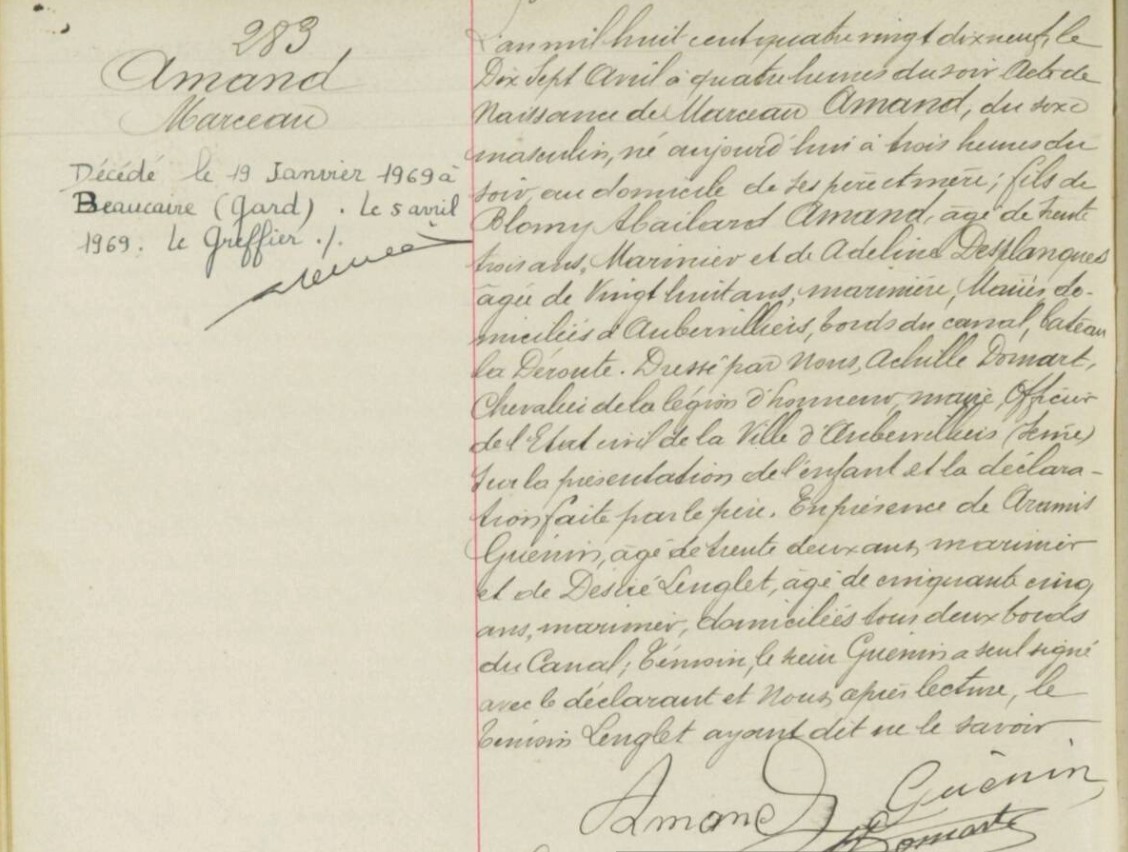 283
Amand
Marceau
Décédé le 19 Janvier 1969 à
Beaucaire (Gard). Le 5 avril
1969. Le Greffier ./.
L'an mil huit cent quatre vingt dix neuf, le
Dix Sept Avril à quatre heures du soir Acte de
Naissance de Marceau Amand, du sexe
masculin, né aujourd'hui à trois heures du
soir, au domicile de ses père et mère; fils de
Blomy Abailard Amand, âgé de trente
trois ans, Marinier et de Adeline Desplanques
âgée de Vingt huit ans, marinière, Mariés, do-
miciliés à Aubervilliers, bords du canal, bateau
la Déroute. Dressé par Nous, Achille Domart,
Chevalier de la légion d'honneur, maire, Officier
de l'Etat civil de la Ville d'Aubervilliers (Seine)
Sur la présentation de l'enfant et la déclara-
tion faite par le père. En présence de Aramis
Guénin, âgé de trente deux ans, marinier
et de Désiré Lenglet, âgé de cinquante cinq
ans, marinier, domiciliés tous deux bords
du Canal; Témoin, le sieur Guénin a seul signé
avec le déclarant et Nous, après lecture, le
témoin Lenglet ayant dit ne le savoir
Amand Guénin
Domart